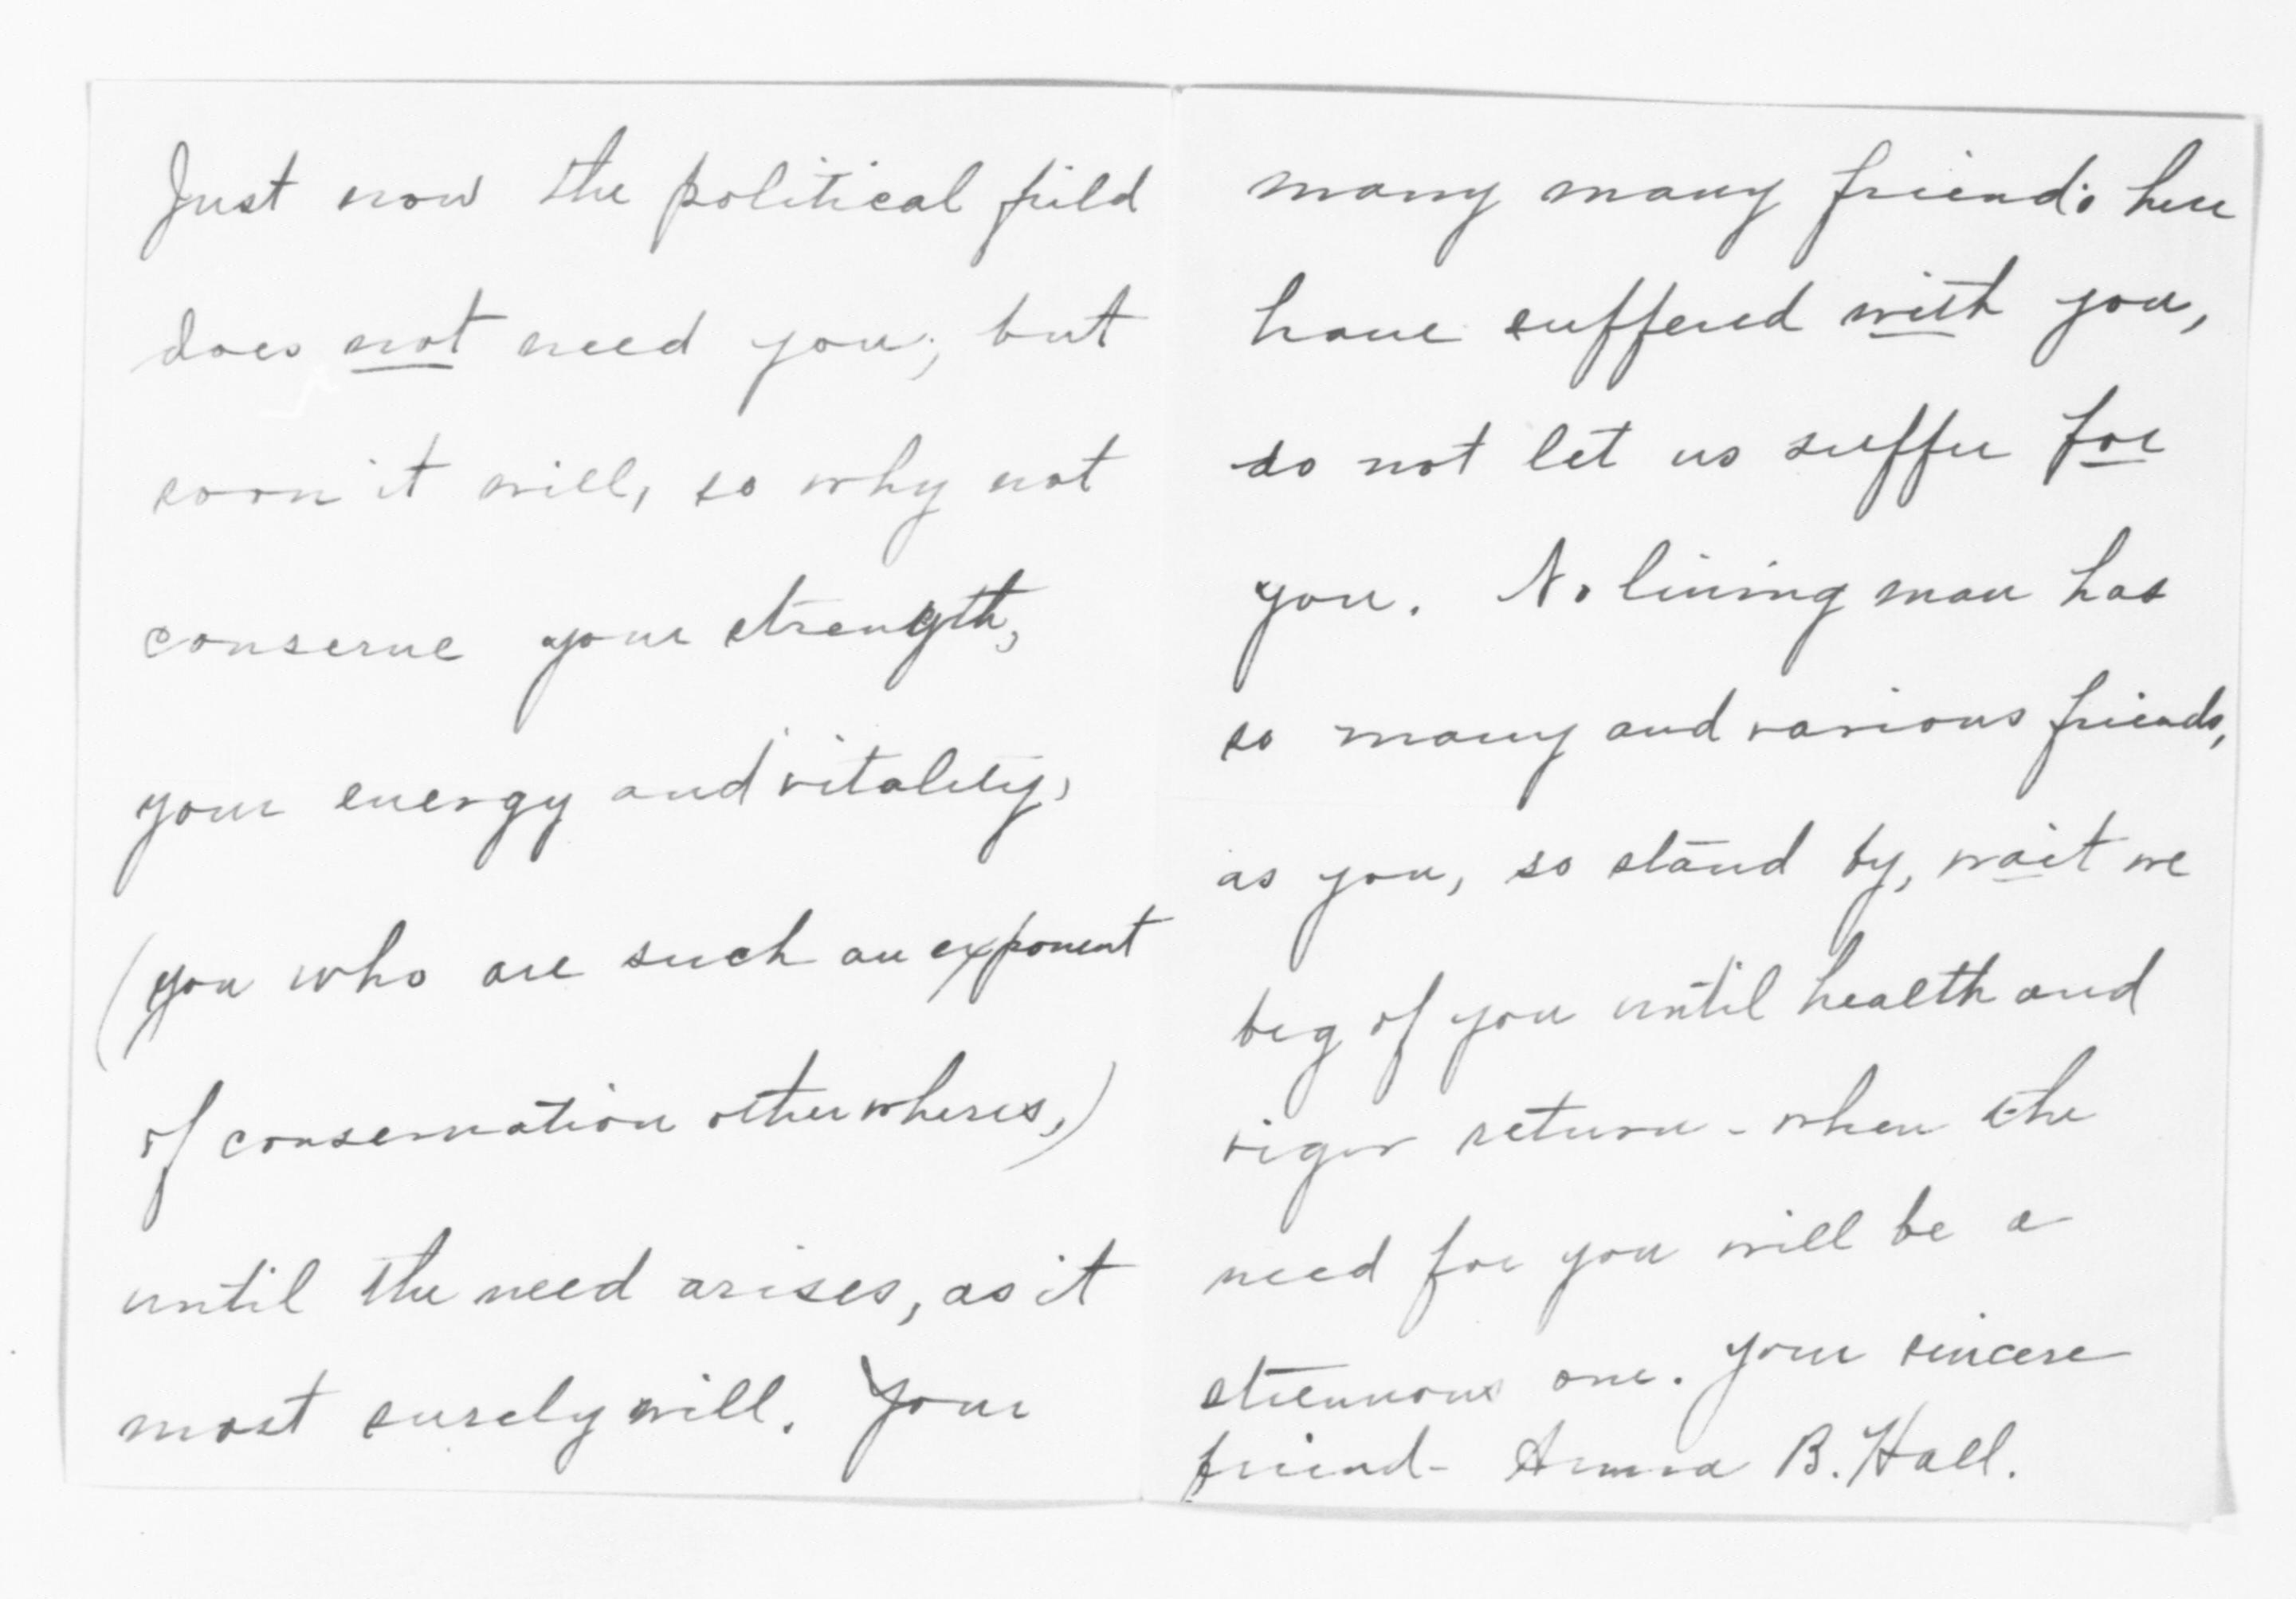 Just now the political field
does not need you; but
soon it will, so why not
conserve your strength,
your energy and vitality,
(you who are such an exponent
of conservation otherwheres,)
until the need arises, as it
most surely will. Your
many many friends here
have suffered with you,
do not let us suffer for
you. No living man has
so many and various friends,
as you, so stand by, wait we
beg of you until health and
vigor return - when the
need for you will be a
strenuous one. Your sincere
friend - Anna B. Hall.